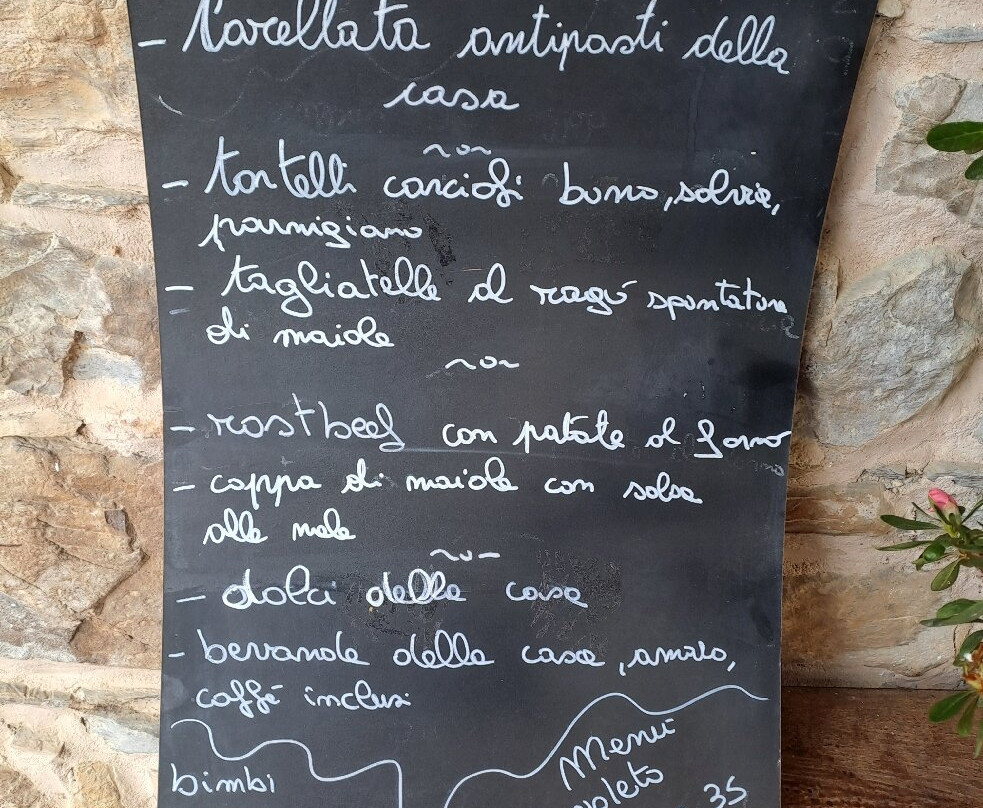 - Carellata antipasti della
casa
~o~
- tortelli carciofi burro, salvia,
parmigiano
- tagliatelle al ragù spuntatura
di maiale
~o~
- rostbeef con patate al forno
- coppa di maiale con salsa
alle mele
~o~
- dolci della casa
- bevande della casa, amaro,
caffè inclusi
bimbi
Menù
35